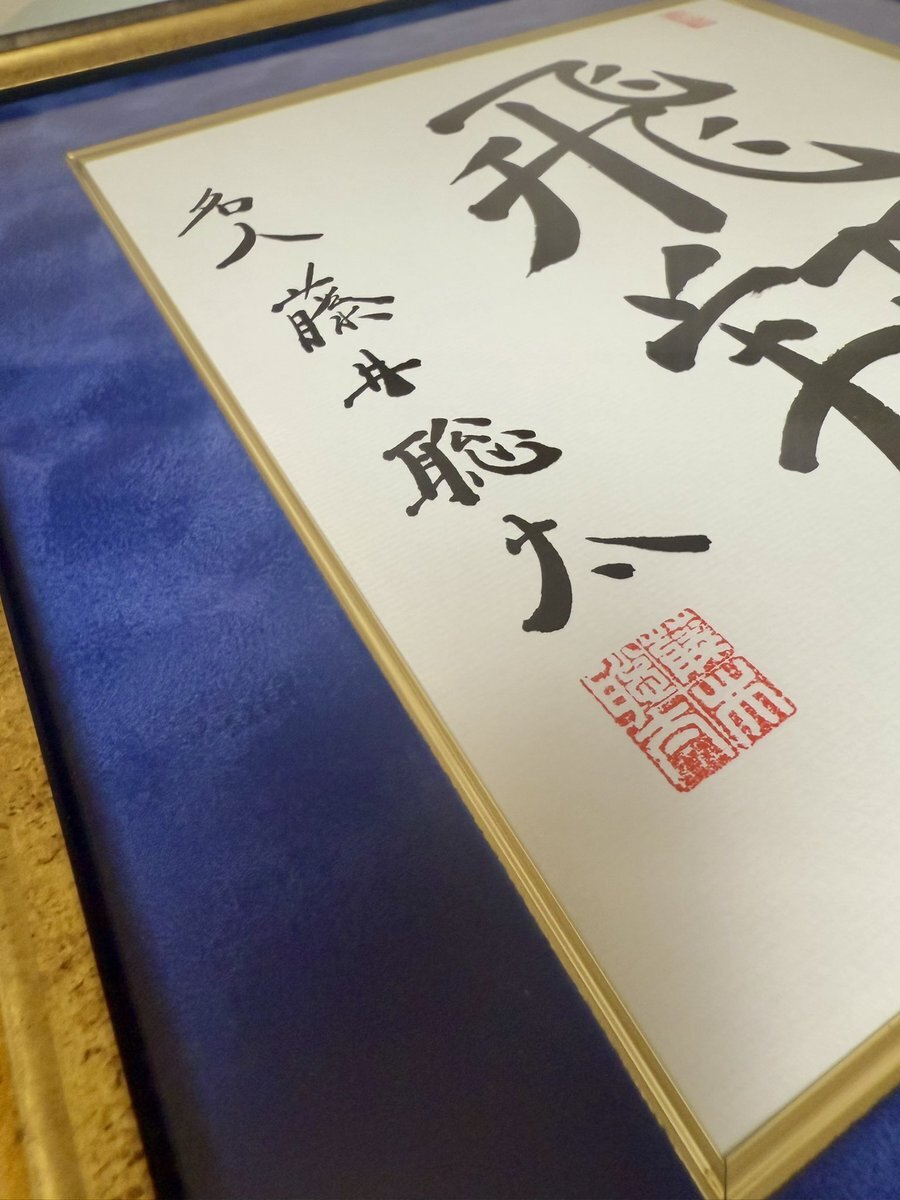 飛
名人 藤井聡太
藤井
聡太